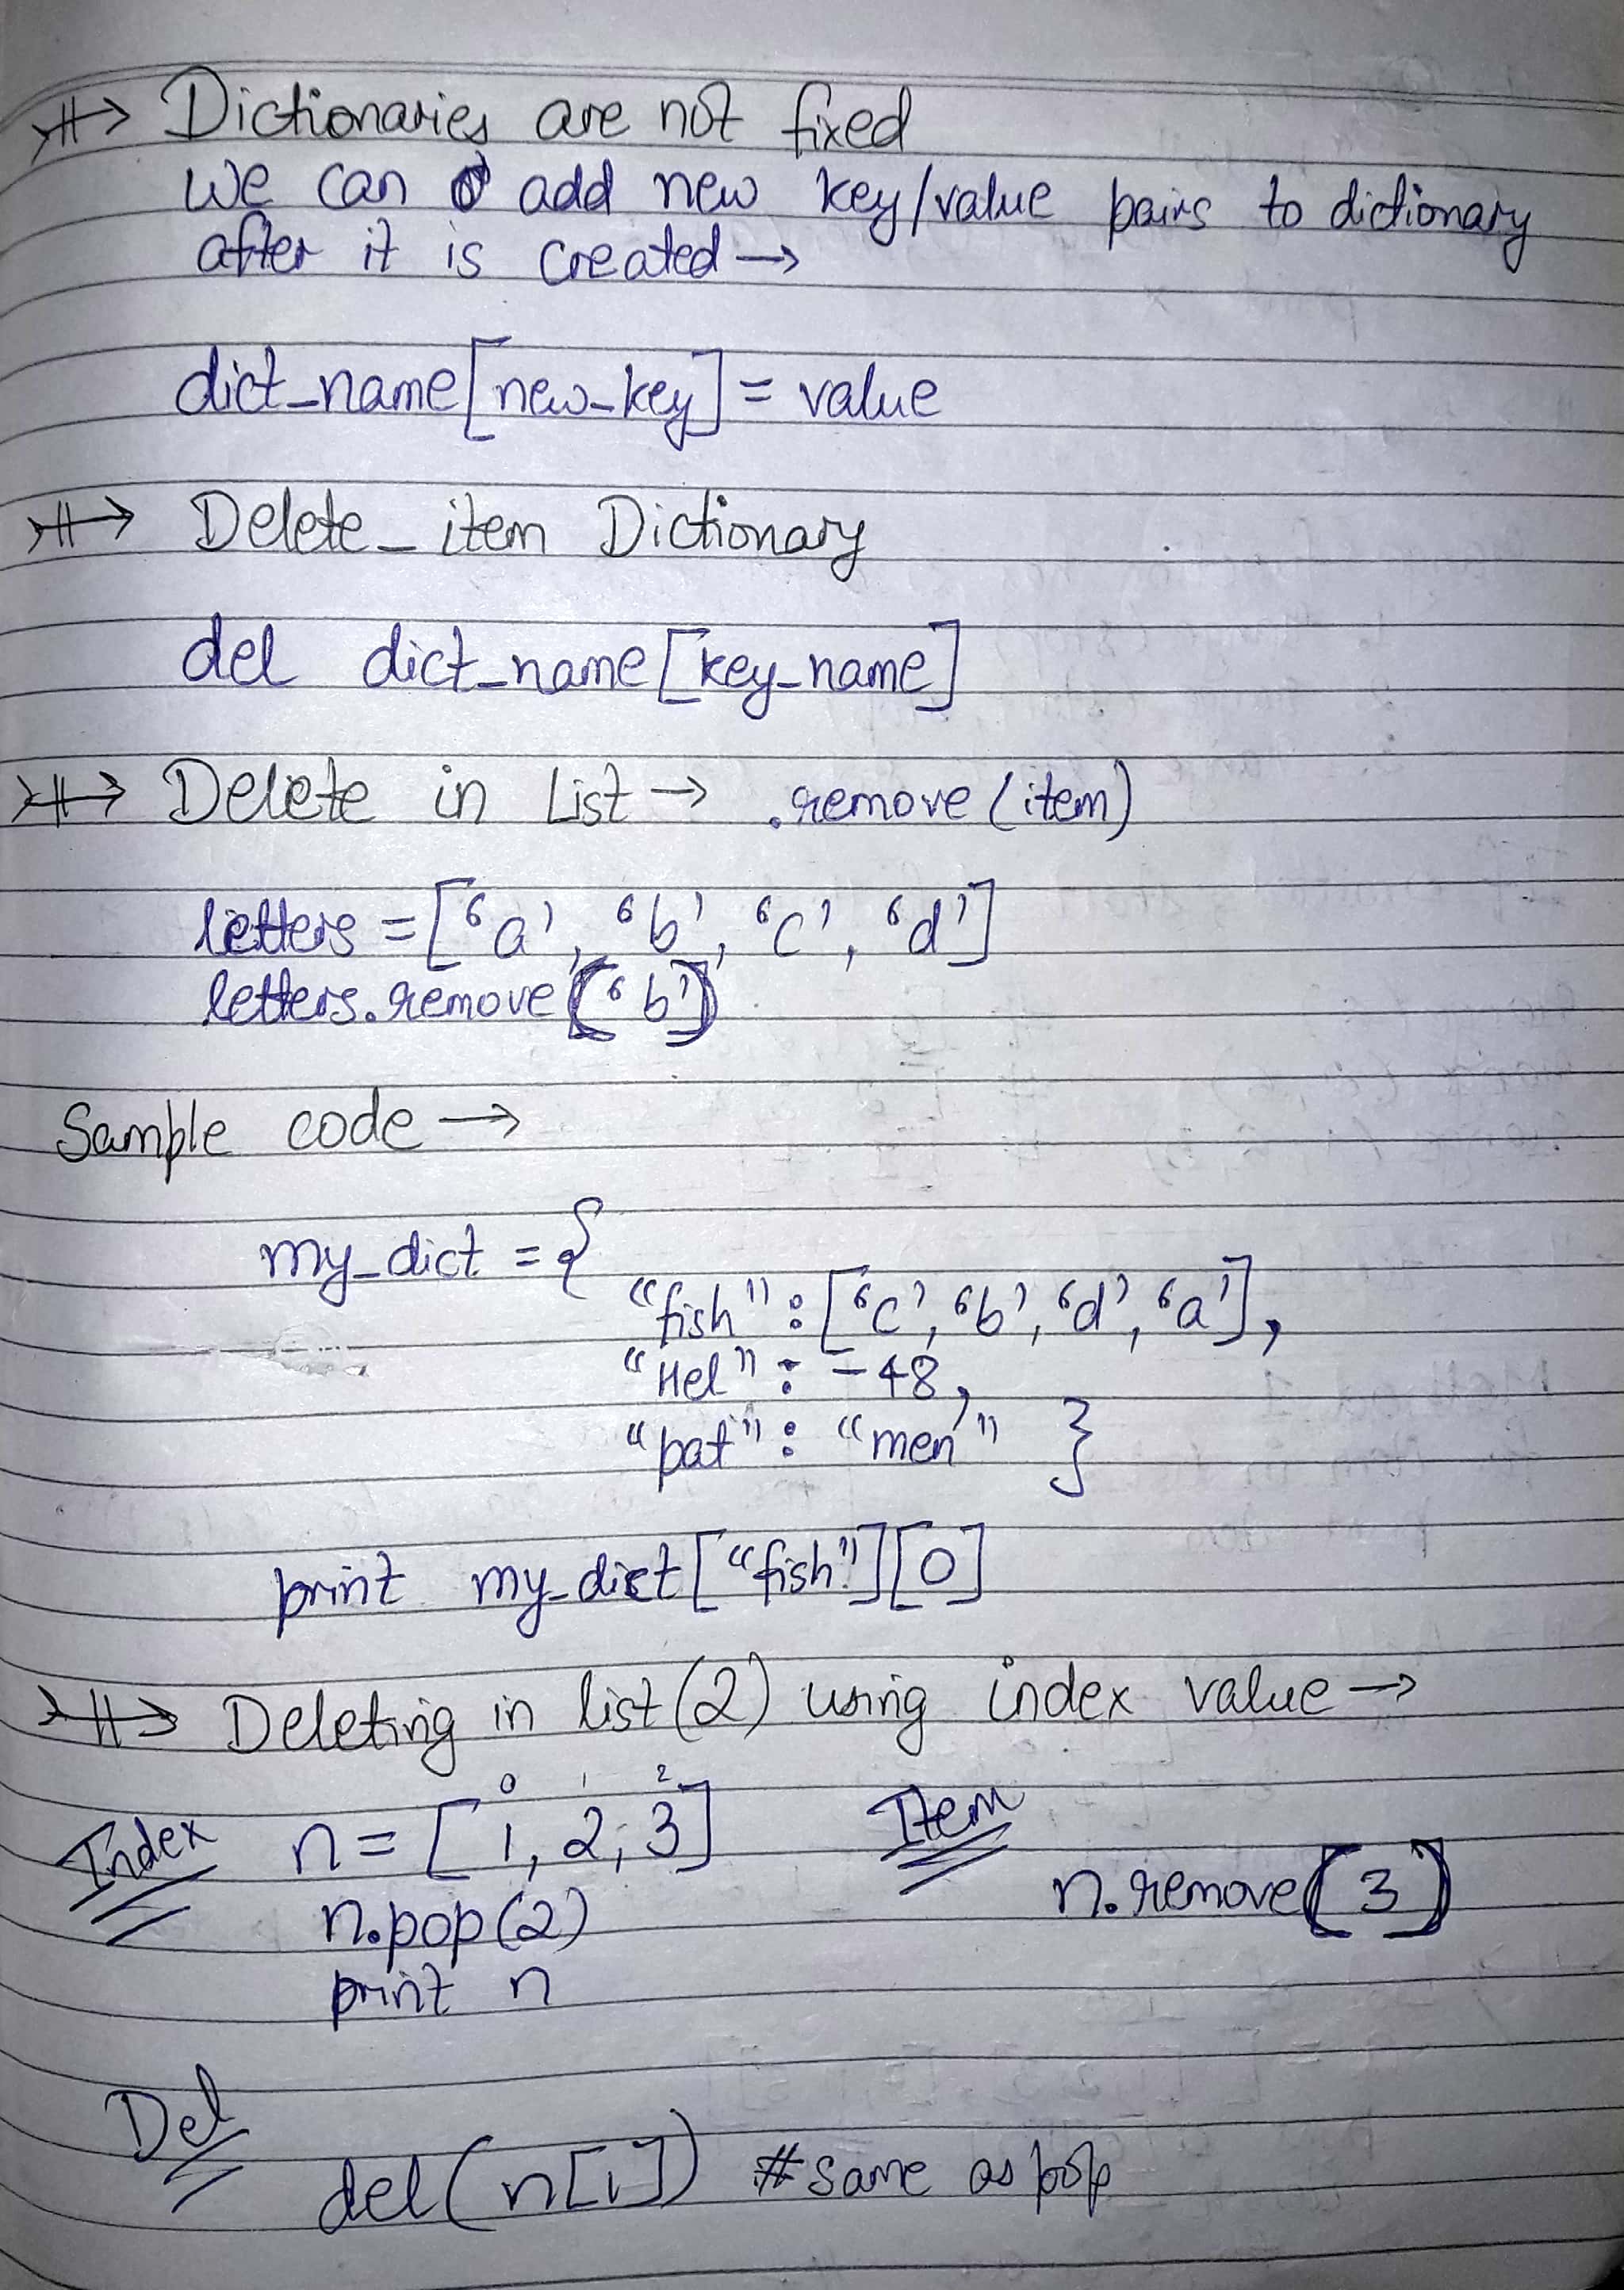 Dictionaries are not fixed
We can add new key/value pairs to dictionary
after it is created →
dict_name[new_key] = value
Delete_item Dictionary
del dict_name[key_name]
Delete in List → .remove(item)
letters = ['a', 'b', 'c', 'd']
letters.remove('b')
Sample code →
my_dict = {
"fish": ['c', 'b', 'd', 'a'],
"Hel": -48,
"pat": "men" }
print my_dict["fish"][0]
Deleting in list(2) using index value →
0 1 2
Index n = [1, 2, 3] Item
n.pop(2) n.remove(3)
print n
Del
del(n[1]) #same as pop